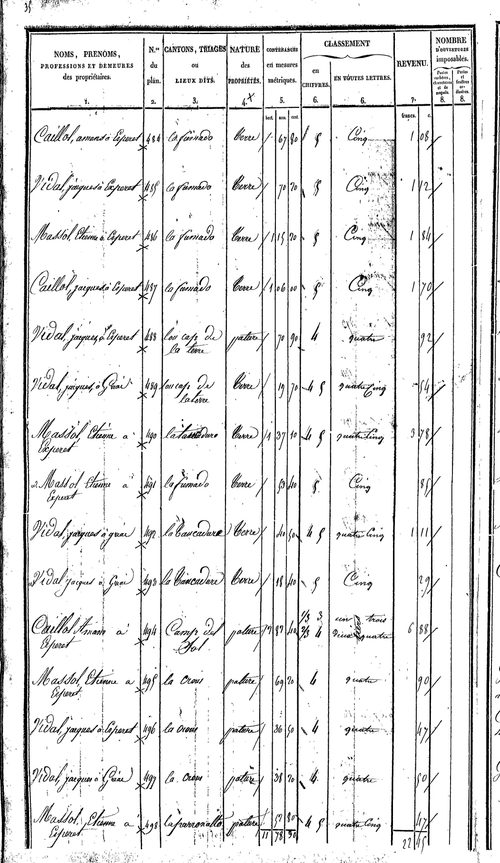 NOMS, PRENOMS, PROFESSIONS ET DEMEURES des propriétaires. N.os du plan. CANTONS, TRIAGES ou LIEUX DITS. NATURE des PROPRIÉTÉS. CONTENANCES en mesures métriques. CLASSEMENT en CHIFFRES. EN TOUTES LETTRES. REVENU. NOMBRE D'OUVERTURES imposables.
1. 2. 3. 4. 5. 6. 6. 7. 8. 8.
hect. ares. cent. francs. c.
Caillol, amans à Esperet 484 la fumado Terre 67 80 5 Cinq 1 08
Vidal, jacques à Esperet 485 la fumado Terre 70 20 5 Cinq 1 12
Massol, Etienne à Esperet 486 la fumado Terre 1 15 20 5 Cinq 1 84
Caillol, jacques à Esperet 487 la fumado Terre 1 06 00 5 Cinq 1 70
Vidal, jacques, à Esperet 488 lou cap de la terre pature 70 90 4 quatre 92
Vidal, jacques, à 489 lou cap de la terre Terre 19 70 4 5 quatre Cinq 54
Massol, Etienne à Esperet 490 Terre 1 37 10 4 5 quatre Cinq 3 78
Massol Etienne à Esperet 491 la fumado Terre 53 40 5 Cinq 85
Vidal, jacques à 492 la Cancadare Terre 40 50 4 5 quatre Cinq 1 11
Vidal jacques à 493 la Cancadare Terre 18 40 5 Cinq 29
Caillol Amans à Esperet 494 Camp del Sol pature 87 40 1/3 3 2/3 4 un tiers trois quatre 6 88
Massol, Etienne à Esperet 495 la Crous pature 69 20 4 quatre 90
Vidal, jacques à Esperet 496 la Crous pature 36 50 4 quatre 47
Vidal, jacques à 497 la Crous pature 38 20 4 quatre 50
Massol, Etienne à Esperet 498 pature 57 80 4 5 quatre Cinq 47
11 78 30 22 45